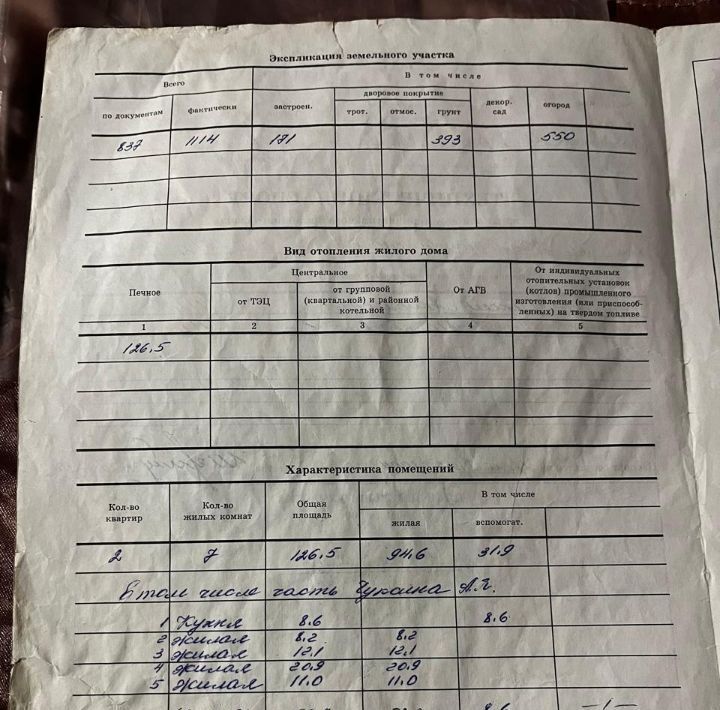 Экспликация земельного участка
Всего В том числе
по документам фактически застроен. дворовое покрытие декор. сад огород
трот. отмос. грунт
837 1114 171 393 550
Вид отопления жилого дома
Печное Центральное От АГВ От индивидуальных отопительных установок (котлов) промышленного изготовления (или приспособ-ленных) на твердом топливе
от ТЭЦ от групповой (квартальной) и районной котельной
1 2 3 4 5
126,5
Характеристика помещений
Кол-во квартир Кол-во жилых комнат Общая площадь В том числе
жилая вспомогат.
2 7 126,5 94,6 31,9
В том числе часть А.Я.
1 Кухня 8.6 8.6
2 жилая 8,2 8,2
3 жилая 12,1 12,1
4 жилая 20,9 20,9
5 жилая 11.0 11.0